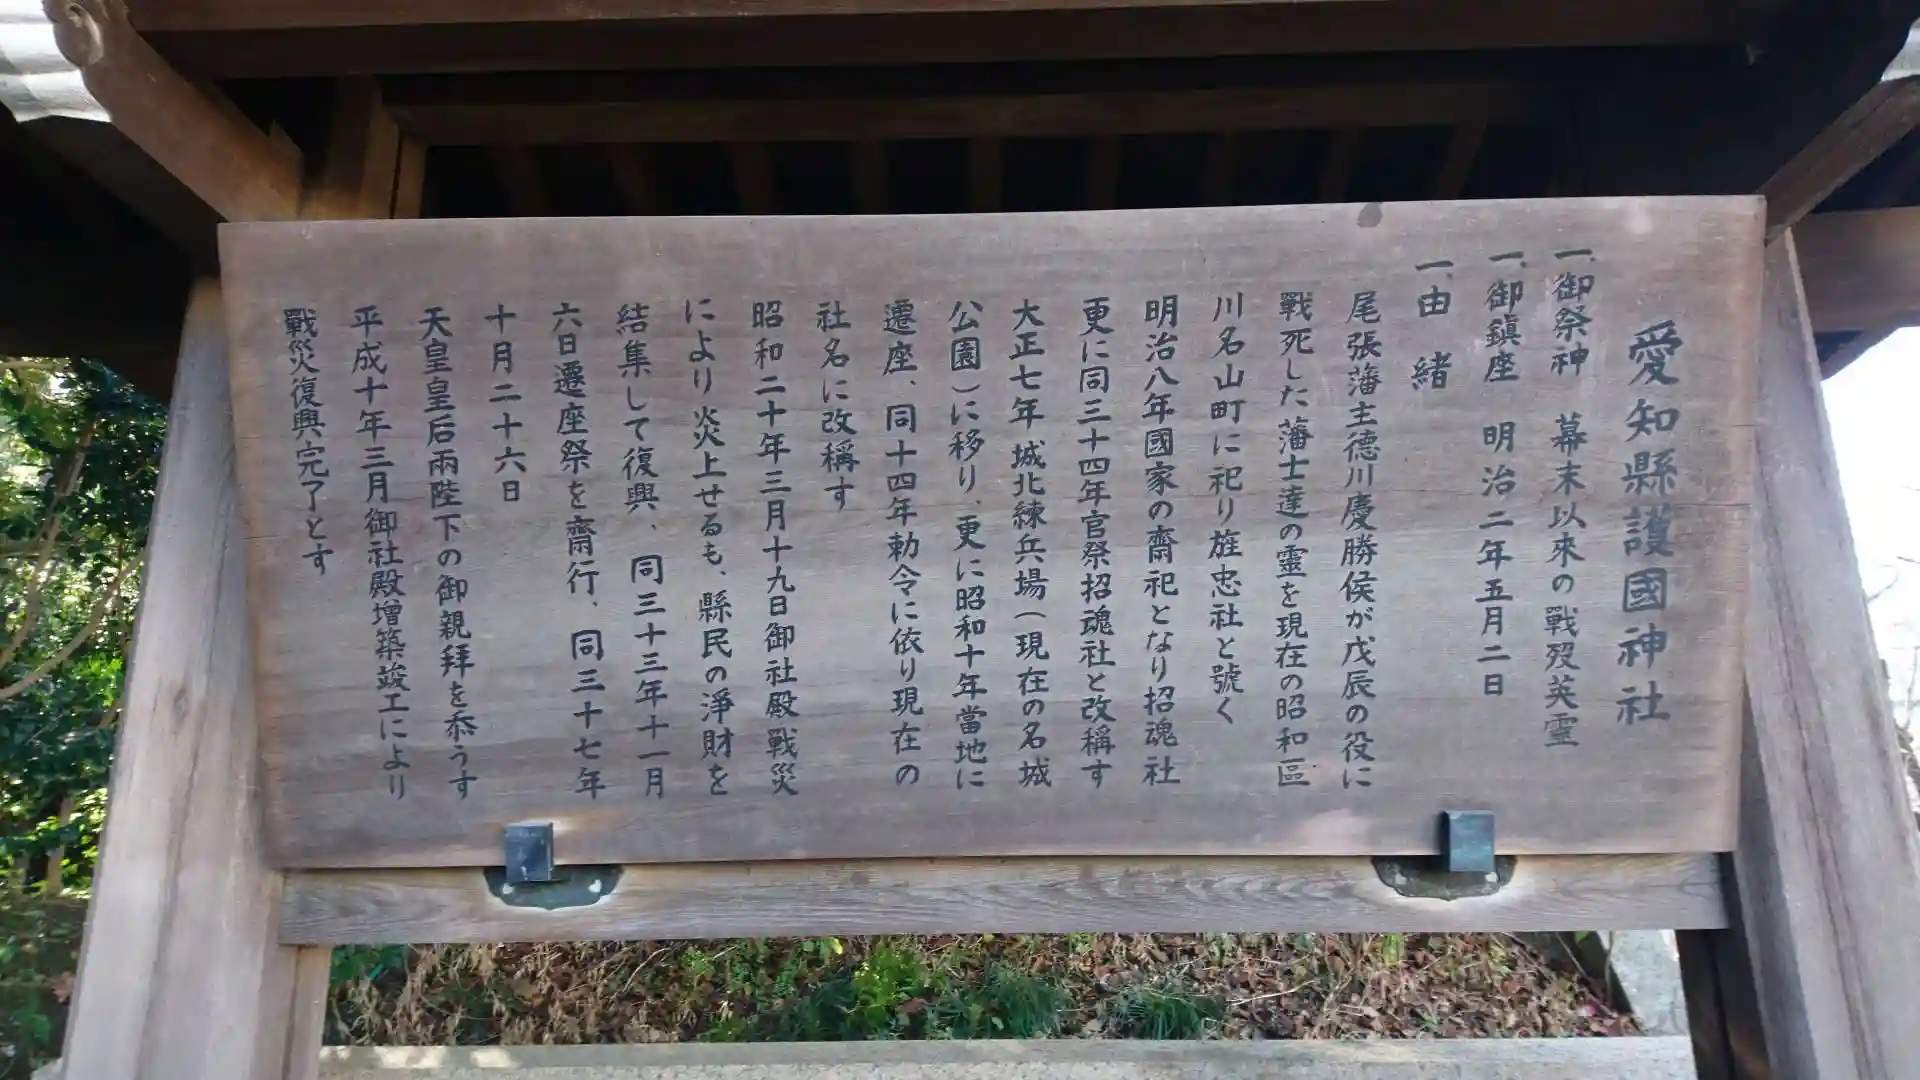 愛知縣護國神社
一、御祭神　幕末以來の戰歿英霊
一、御鎮座　明治二年五月二日
一、由　緒
尾張藩主德川慶勝侯が戊辰の役に
戰死した藩士達の靈を現在の昭和區
川名山町に祀り旌忠社と號く
明治八年國家の齋祀となり招魂社
更に同三十四年官祭招魂社と改稱す
大正七年城北練兵場(現在の名城
公園)に移り、更に昭和十年當地に
遷座、同十四年勅令に依り現在の
社名に改稱す
昭和二十年三月十九日御社殿戰災
により炎上せるも、縣民の淨財を
結集して復興、同三十三年十一月
六日遷座祭を齋行、同三十七年
十月二十六日
天皇皇后兩陛下の御親拜を忝うす
平成十年三月御社殿增築竣工により
戰災復興完了とす